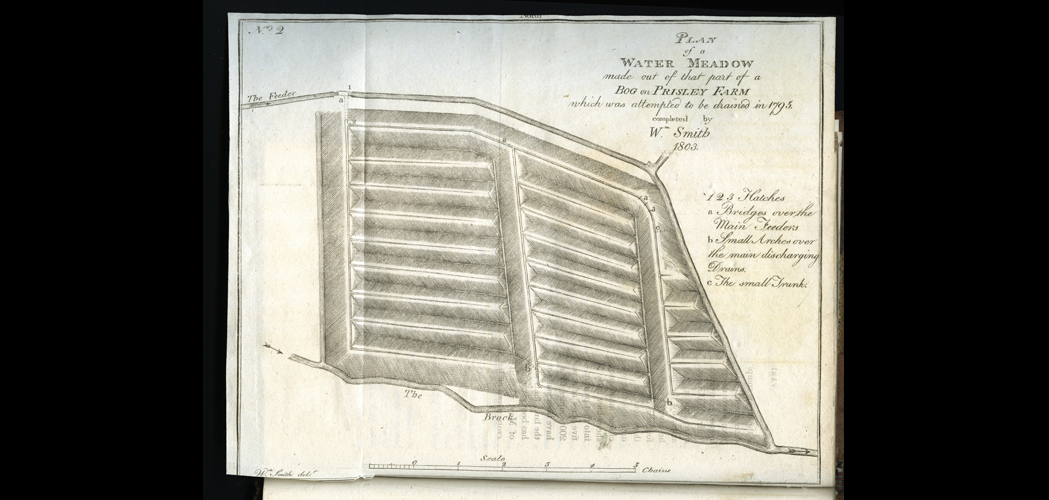 North
Nº 2
PLAN
of a
WATER MEADOW
made out of that part of a
BOG on PRISLEY FARM
which was attempted to be drained in 1795.
completed by
Wm Smith
1803.
The Feeder
1
a
2
a
3
c
1 2 3 Hatches
a Bridges over the
Main Feeders
b Small Arches over
the main discharging
Drains.
c The small Trunk.
b
b
The
Brook
Scale
0 1 2 3 4 5
Chains
Wm Smith delt